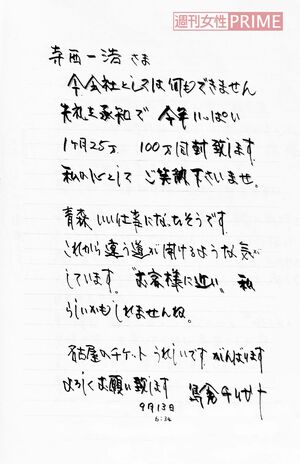 週刊女性PRIME
寺西一浩さま
今会社としては何もできません
失礼を承知で 今年いっぱい
1ヶ月25万 100万同封致します
私の心として ご笑納下さいませ。
青森いい仕事になりそうです
これから違う道が開けるような気が
しています。"お客様に近い。私
らしいかもしれませんね。
名古屋のチケット うれしいです がんばります
よろしくお願い致します
9月13日
6:34